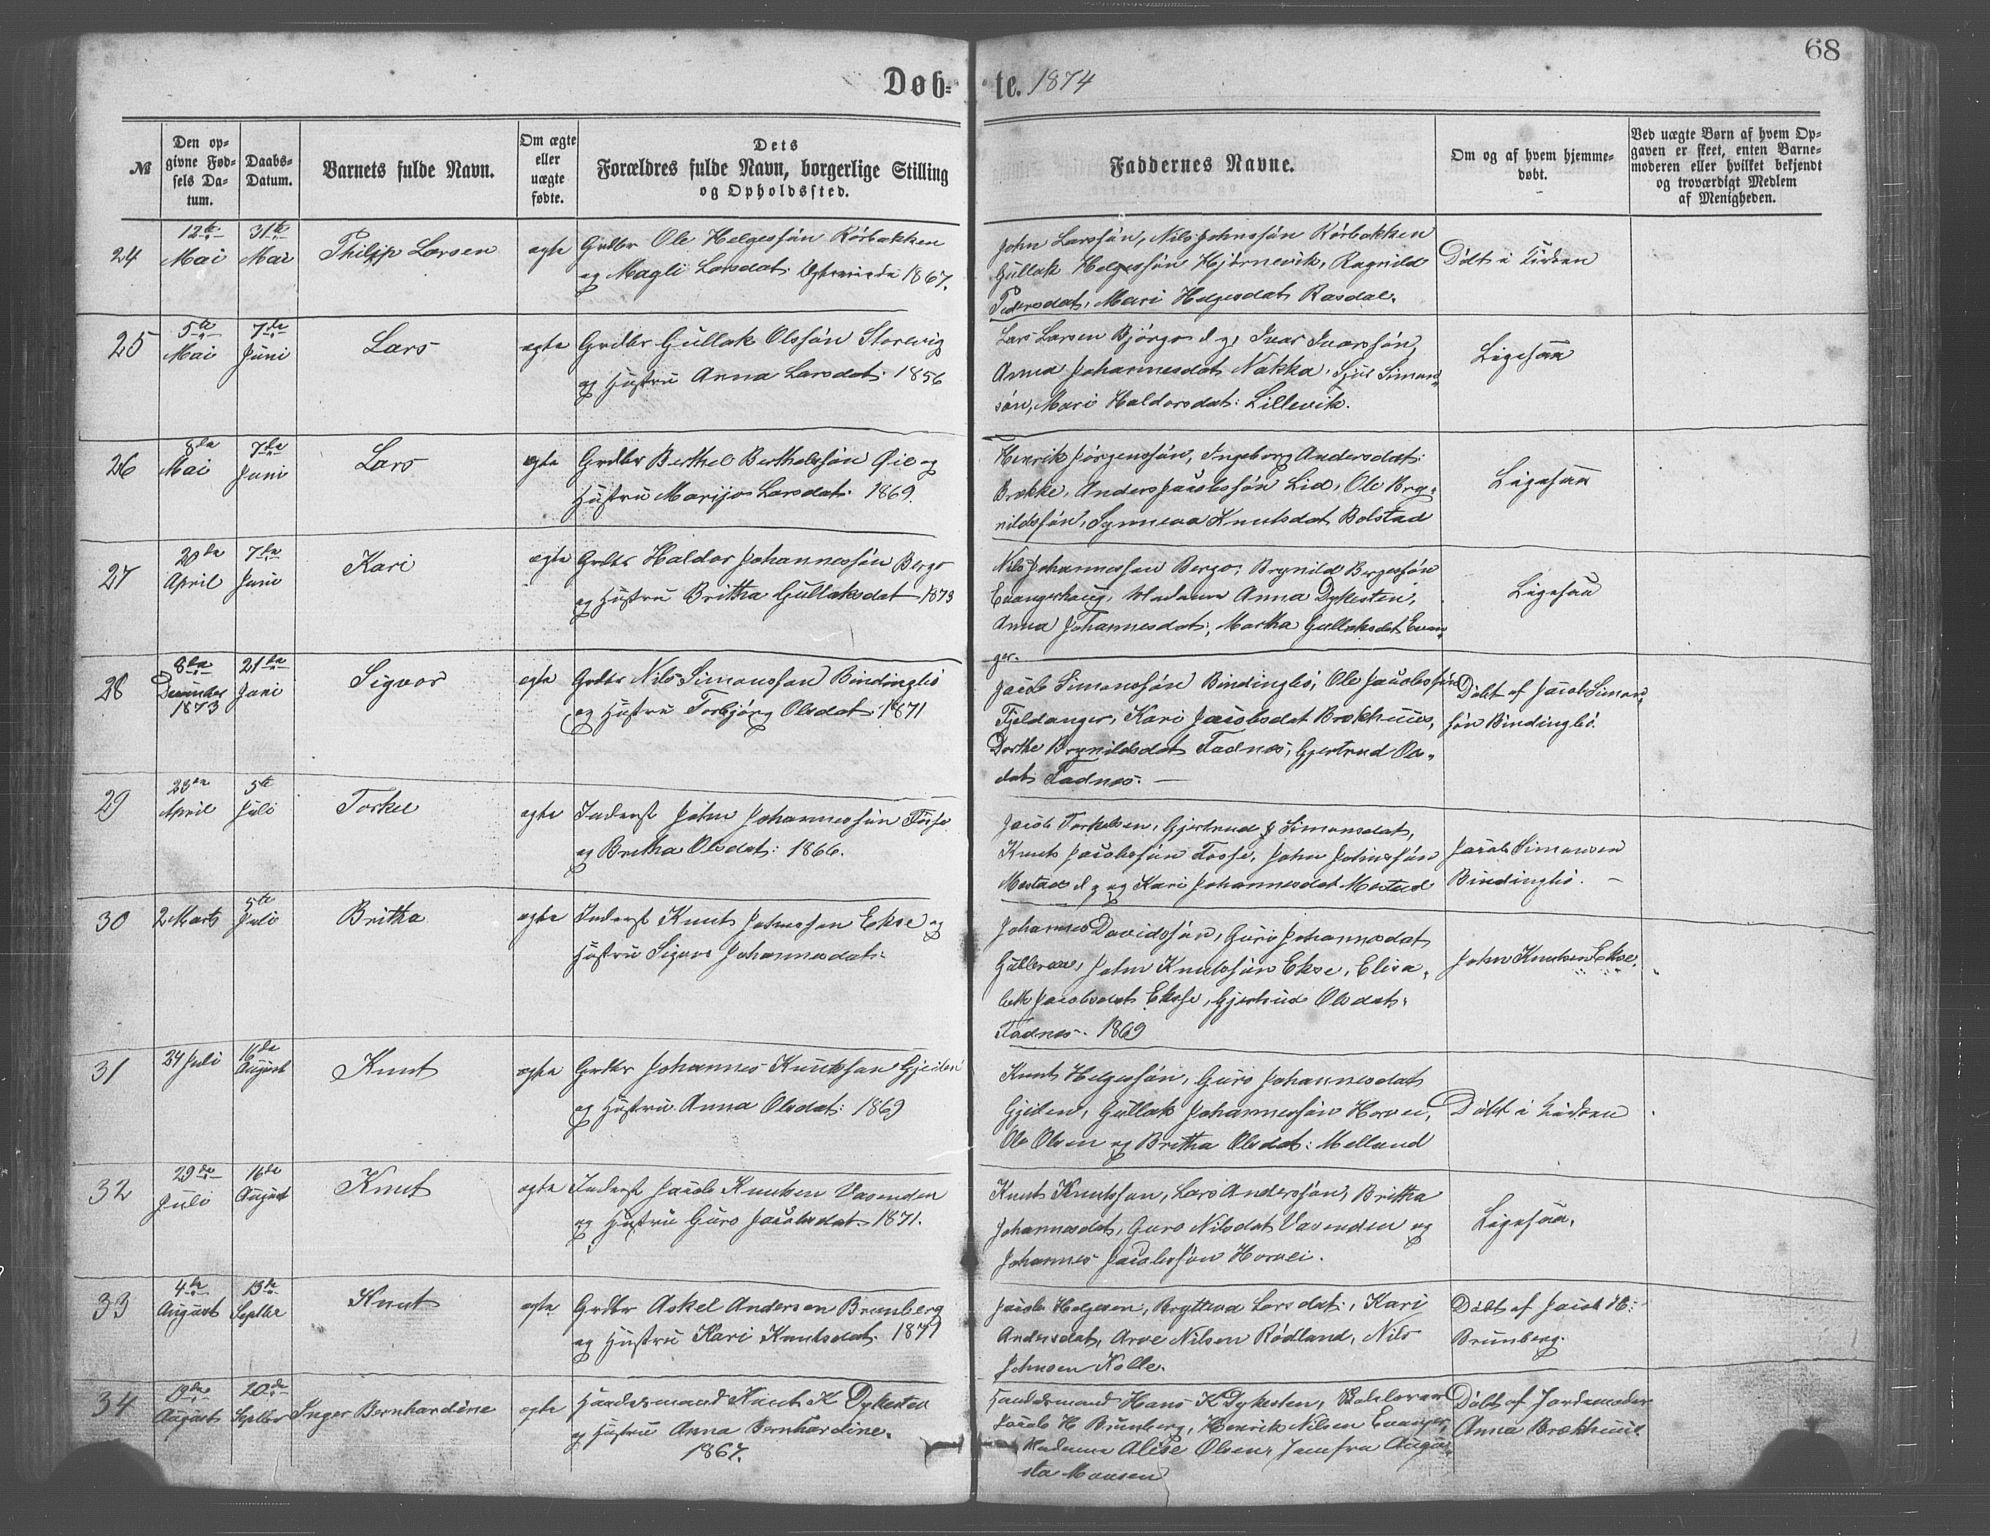 68
Døb- te. 1874
№
Den opgivne Fødsels Datum.
Daabs-Datum.
Barnets fulde Navn.
Om ægte eller uægte fødte.
Dets Forældres fulde Navn, borgerlige Stilling og Opholdssted.
Faddernes Navne.
Om og af hvem hjemmedøbt.
Ved uægte Børn af hvem Opgaven er skeet, enten Barnemoderen eller hvilket bekjendt og troværdigt Medlem af Menigheden.
24
12te Mai
31te Mai
Philip Larsen
egte
Grdbr Ole Helgessøn Rørbakken
og Magli Larsdat: 1867.
John Larssøn, Nils Johnssøn Rørbakken
Gullak Helgessøn Hjørnevik, Ragnild
Pedersdat, Mari Helgesdat Rasdal.
Døbt i Kirken
25
5te Mai
7de Juni
Lars
egte
Grdbr Gullak Olssøn Storevig
og Hustru Anna Larsdat: 1856
Lars Larsen Bjørgo d y, Ivar Ivarssøn,
Anna Johannesdat Nakka, Sjur Simons-
søn, Mari Haldorsdat: Lillevik.
Ligesaa
26
8de Mai
7de Juni
Lars
egte
Grdbr Berthel Berthelssøn Øie og
Hustru Marijo Larsdat: 1869.
Henrik Jørgenssøn, Ingeborg Andersdat:
Brække, Anders Jacobssøn Lid, Ole Bry-
nildssøn, Synneva Knutsdat Bolstad
Ligesaa
27
20de April
7de Juni
Kari
egte
Grdbr Haldor Johannessøn Bergo
og Hustru Britha Gullaksdat 1873
Nils Johannessøn Bergo, Brynild Bergessøn
Evangerhaug, Madame Anna Dykesten,
Anna Johannesdat, Martha Gullaksdat Evan-
ger.
Ligesaa
28
8de December 1873
21de Juni
Sigvor
egte
Grdbr Nils Simonssøn Bindingbø
og Hustru Torbjørg Olsdat 1871
Jacob Simonssøn Bindingbø, Ole Jacobssøn
Fjeldanger, Kari Jacobsdat Brækhuus,
Dorthe Brynildsdat Fadnes, Gjertrud Ols-
dat Fadnes. —
Døbt af Jacob Simons-
søn Bindingbø.
29
28de April
5te Juli
Torkel
egte
Inderst John Johannessøn Fosse
og Britha Olsdat: 1866.
Jacob Torkelsen, Gjertrud Simonsdat,
Knut Jacobssøn Fosse, John Johnssøn
Mestad d y og Kari Johannesdat Mestad
Jacob Simonsen
Bindingbø. —
30
2 Marts
5te Juli
Britha
egte
Inderst Knut Johnssøn Ekse og
Hustru Sigvor Johannesdat:
Johannes Davidssøn, Guri Johannesdat
Gullbraa, John Knutssøn Ekse, Elisa-
beth Jacobsdat Ekse, Gjertrud Olsdat:
Fadnes. 1869
John Knutsen Ekse.
31
24 Juli
16de August
Knut
egte
Grdbr Johannes Knutssøn Gjeiden
og Hustru Anna Olsdat: 1869
Knut Helgessøn, Guro Johannesdat
Gjeiden, Gullak Johannessøn Horvei,
Ole Olsen og Britha Olsdat: Melland
Døbt i Kirken
32
29de Juli
16de August
Knut
egte
Inderst Jacob Knutsen Vasenden
og Hustru Guro Jacobsdat 1871.
Knut Knutssøn, Lars Anderssøn, Britha
Johannesdat, Guro Nilsdat Vasenden og
Johannes Jacobssøn Horvei.
Ligesaa.
33
4de August
13de Septbr
Knut
egte
Grdbr Askel Andersen Brunberg
og Hustru Kari Knutsdat. 1871
Jacob Helgesen, Brytteva Larsdat, Kari
Andersdat, Arve Nilsen Rødland, Nils
Johnsen Kolle.
Døbt af Jacob H:
Brunberg.
34
19de August
20de Septbr
Inger Bernhardine
egte
Handelsmand Knut K Dykesten
og Hustru Anna Bernhardine.
1867.
Handelsmand Hans K Dykesten,
Jacob H Brunberg, Henrik Nilsen Evanger,
Madame Alise Olsen, Jomfru Augu-
sta Monsen
Døbt af Jordemoder
Anna Brækhuus